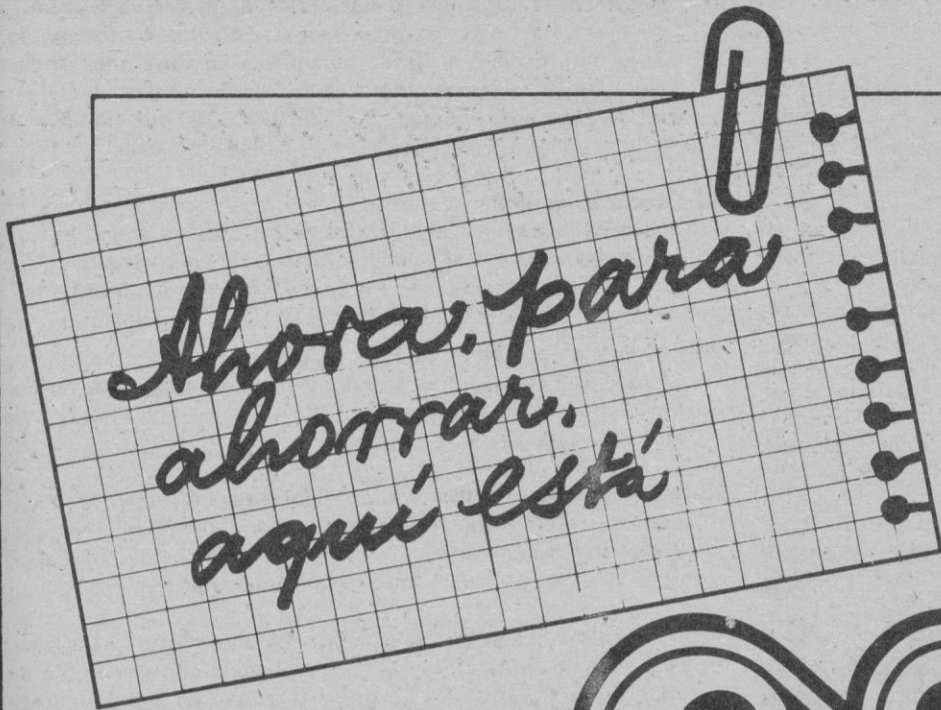 Ahora, para
ahorrar,
aquí está